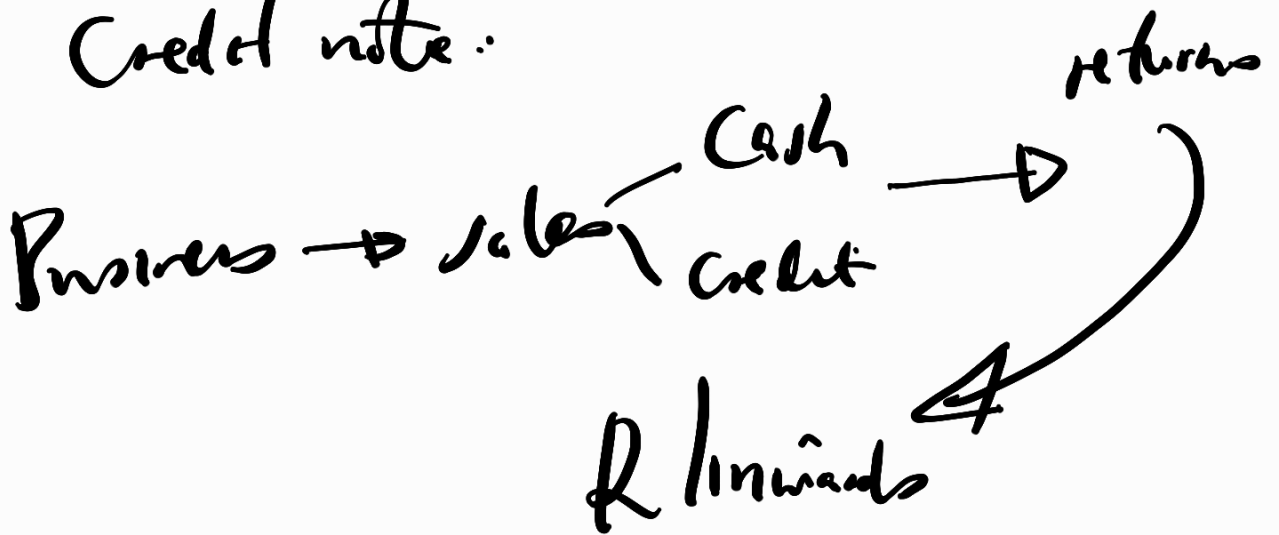 Credit note :
returns
Cash
Business → sales
Credit
R/inwards